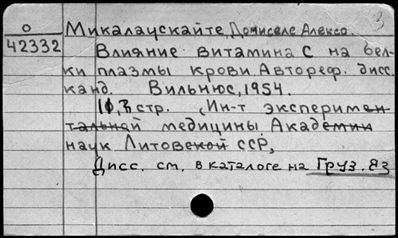 3
О
42332
Микалаускайте, Домиселе Алексо.
Влияние витамина С на бел-
ки плазмы крови. Автореф. дисс.
канд. Вильнюс, 1954.
стр. (Ин-т эксперимен-
тальной медицины Академии
наук Литовской ССР,
Дисс. см. в каталоге на Груз. яз